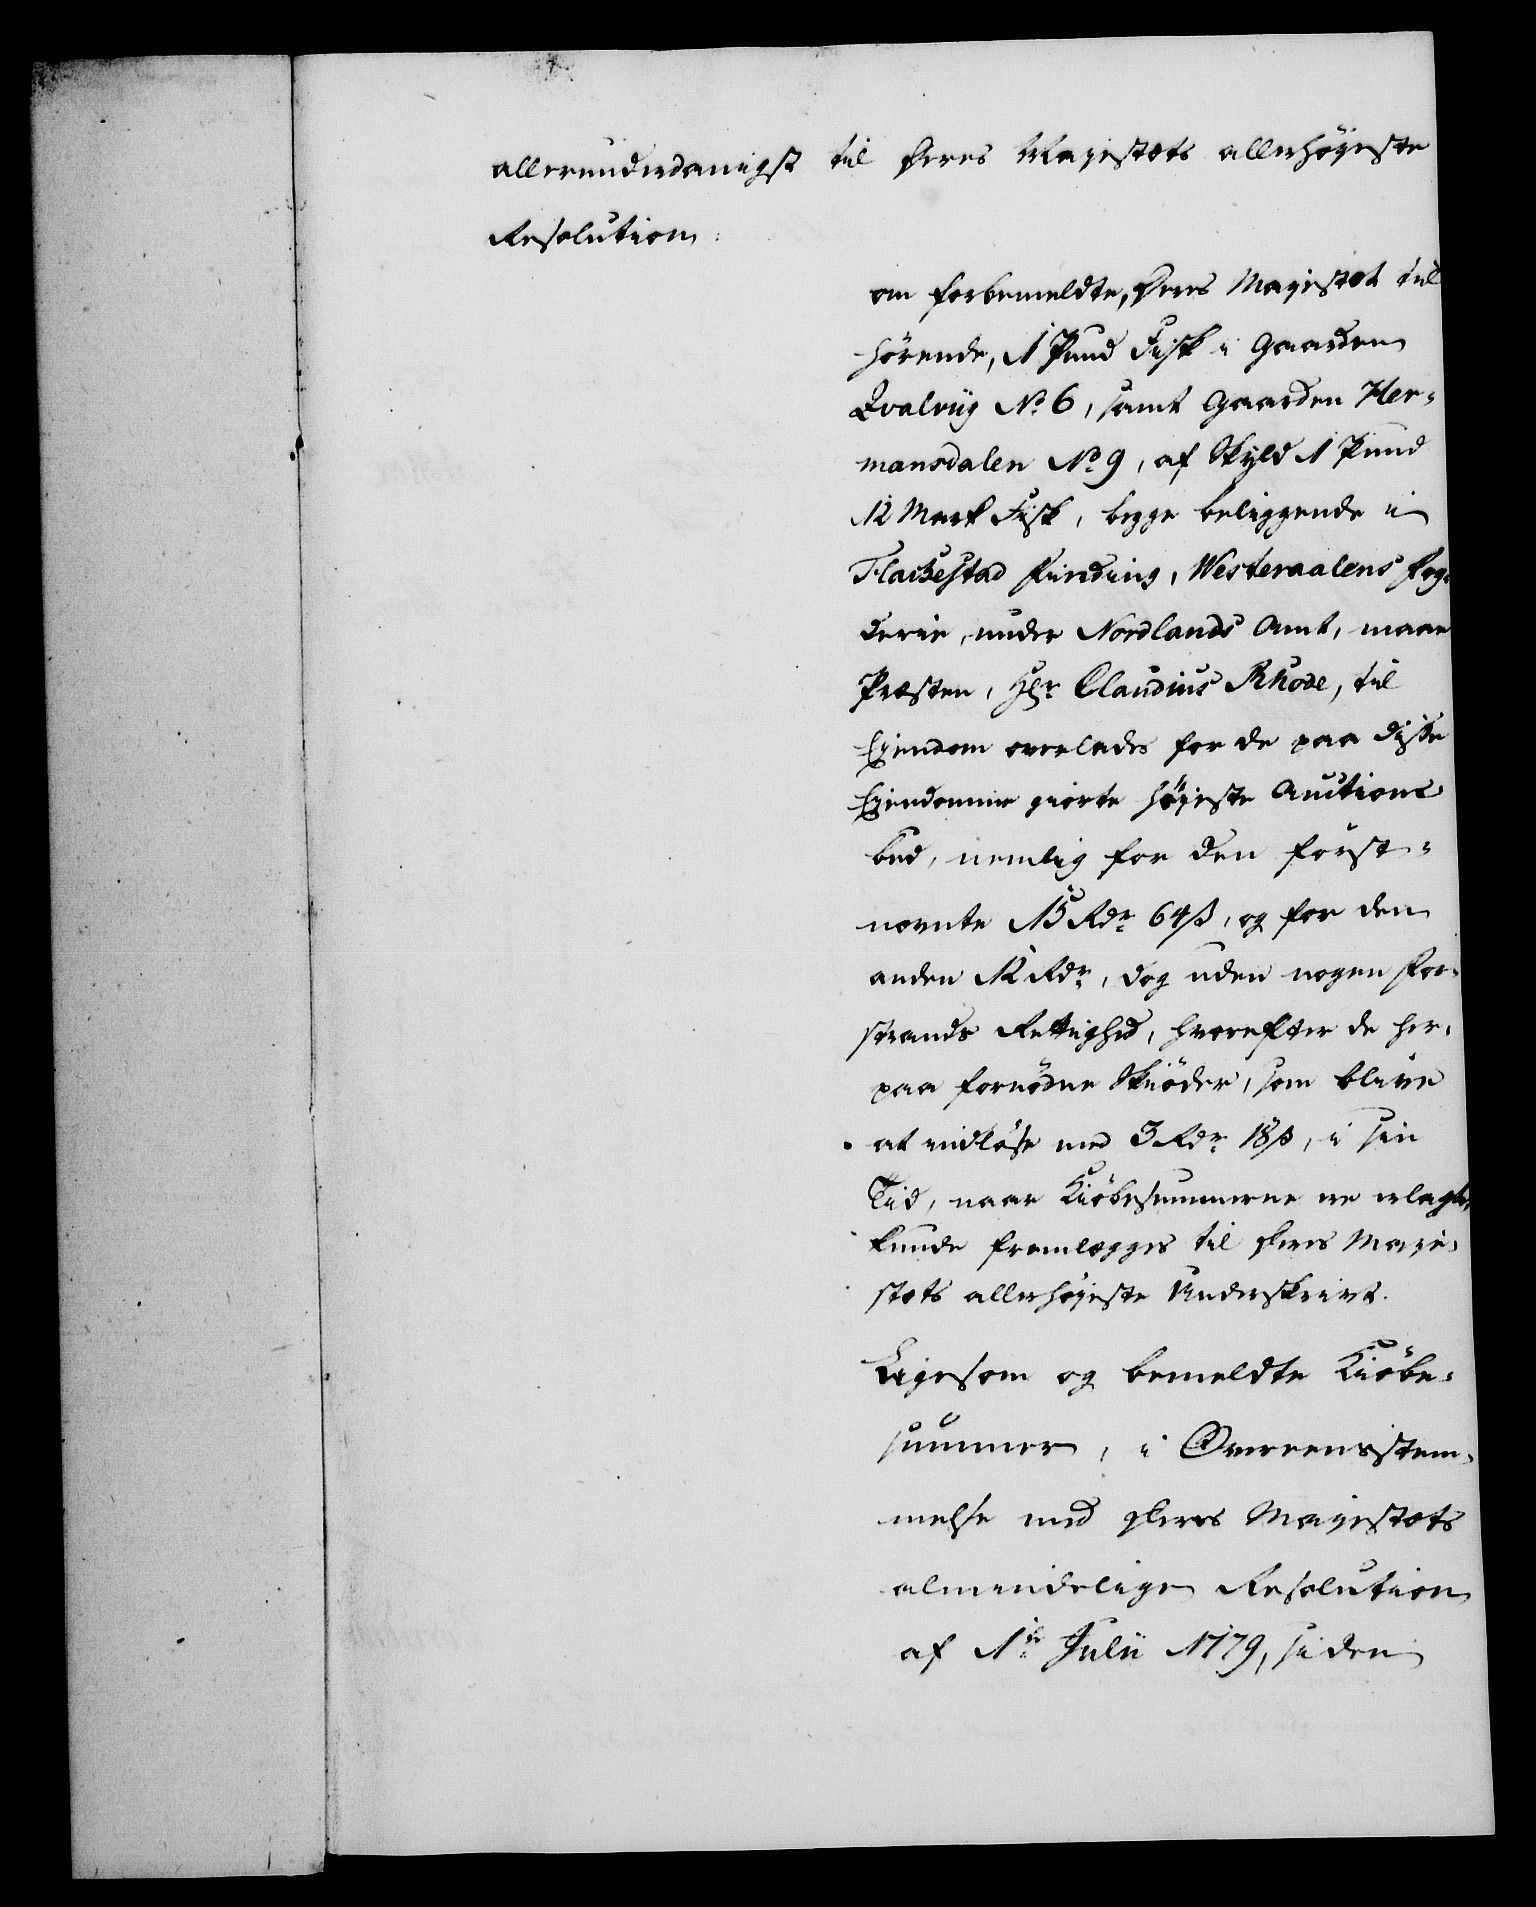 allerunderdanigst til Deres Majestæts allerhøyeste
Resolution:
om forbemeldte, Deres Majestæt til
hörende, 1 Pund Fisk i Gaarden
Qvalviig No 6, samt Gaarden Her-
mansdalen No 9, af Skyld 1 Pund
12 Mark Fisk, begge beliggende i
Flackestad Finding, Westeraalens Fog-
derie, under Nordlands Amt, maae
Præsten, Hr Claudius Rhode, til
Ejendom overlades for de paa disse
Ejendomme giorte høyeste Auctions
bud, nemlig for den först-
nævnte 15 Rdr 64 ß, og for den
anden 12 Rdr, dog uden nogen For-
strands Rettighed, hvorefter de her-
paa fornödne Skiöder, som blive
at indlöse med 3 Rdr 18 ß, i sin
Tid, naar Kiöbesummerne ere erlagte,
kunde fremlægges til Deres Maje-
stæts allerhøyeste Underskrivt.
Ligesom og bemeldte Kiöbe-
summer, i Overeensstem-
melse med Deres Majestæts
almindelige Resolution
af 1te Julii 1779, siden